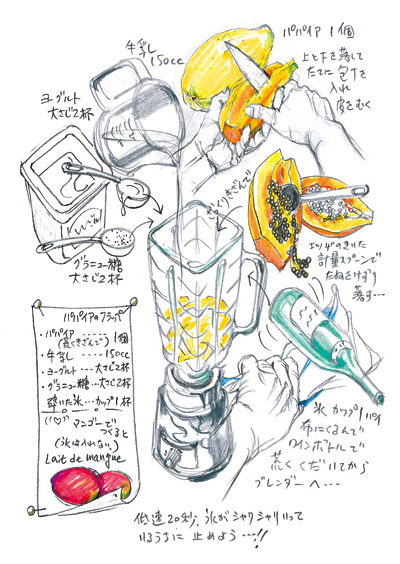 パパイア 1個
上と下を落して
たてに包丁を
入れ
皮をむく
牛乳
150cc
ヨーグルト
大さじ2杯
グラニュー糖
大さじ2杯
ざっくりきざんで
エッジのきいた
計量スプーンで
たねをけずり
落す…
パパイアのフラッペ
・パパイア ---- 1個
(荒くきざんで)
・牛乳 ---- 150cc
・ヨーグルト …大さじ2杯
・グラニュー糖…大さじ2杯
・砕いた氷…カップ1杯
マンゴーで
つくると
(氷は入れない)
Lait de mangue
氷 カップ1パイ
布にくるんで
ワインボトルで
荒く くだいてから
ブレンダーへ…
低速20秒、氷がシャリシャリいって
いるうちに 止めよう…!!